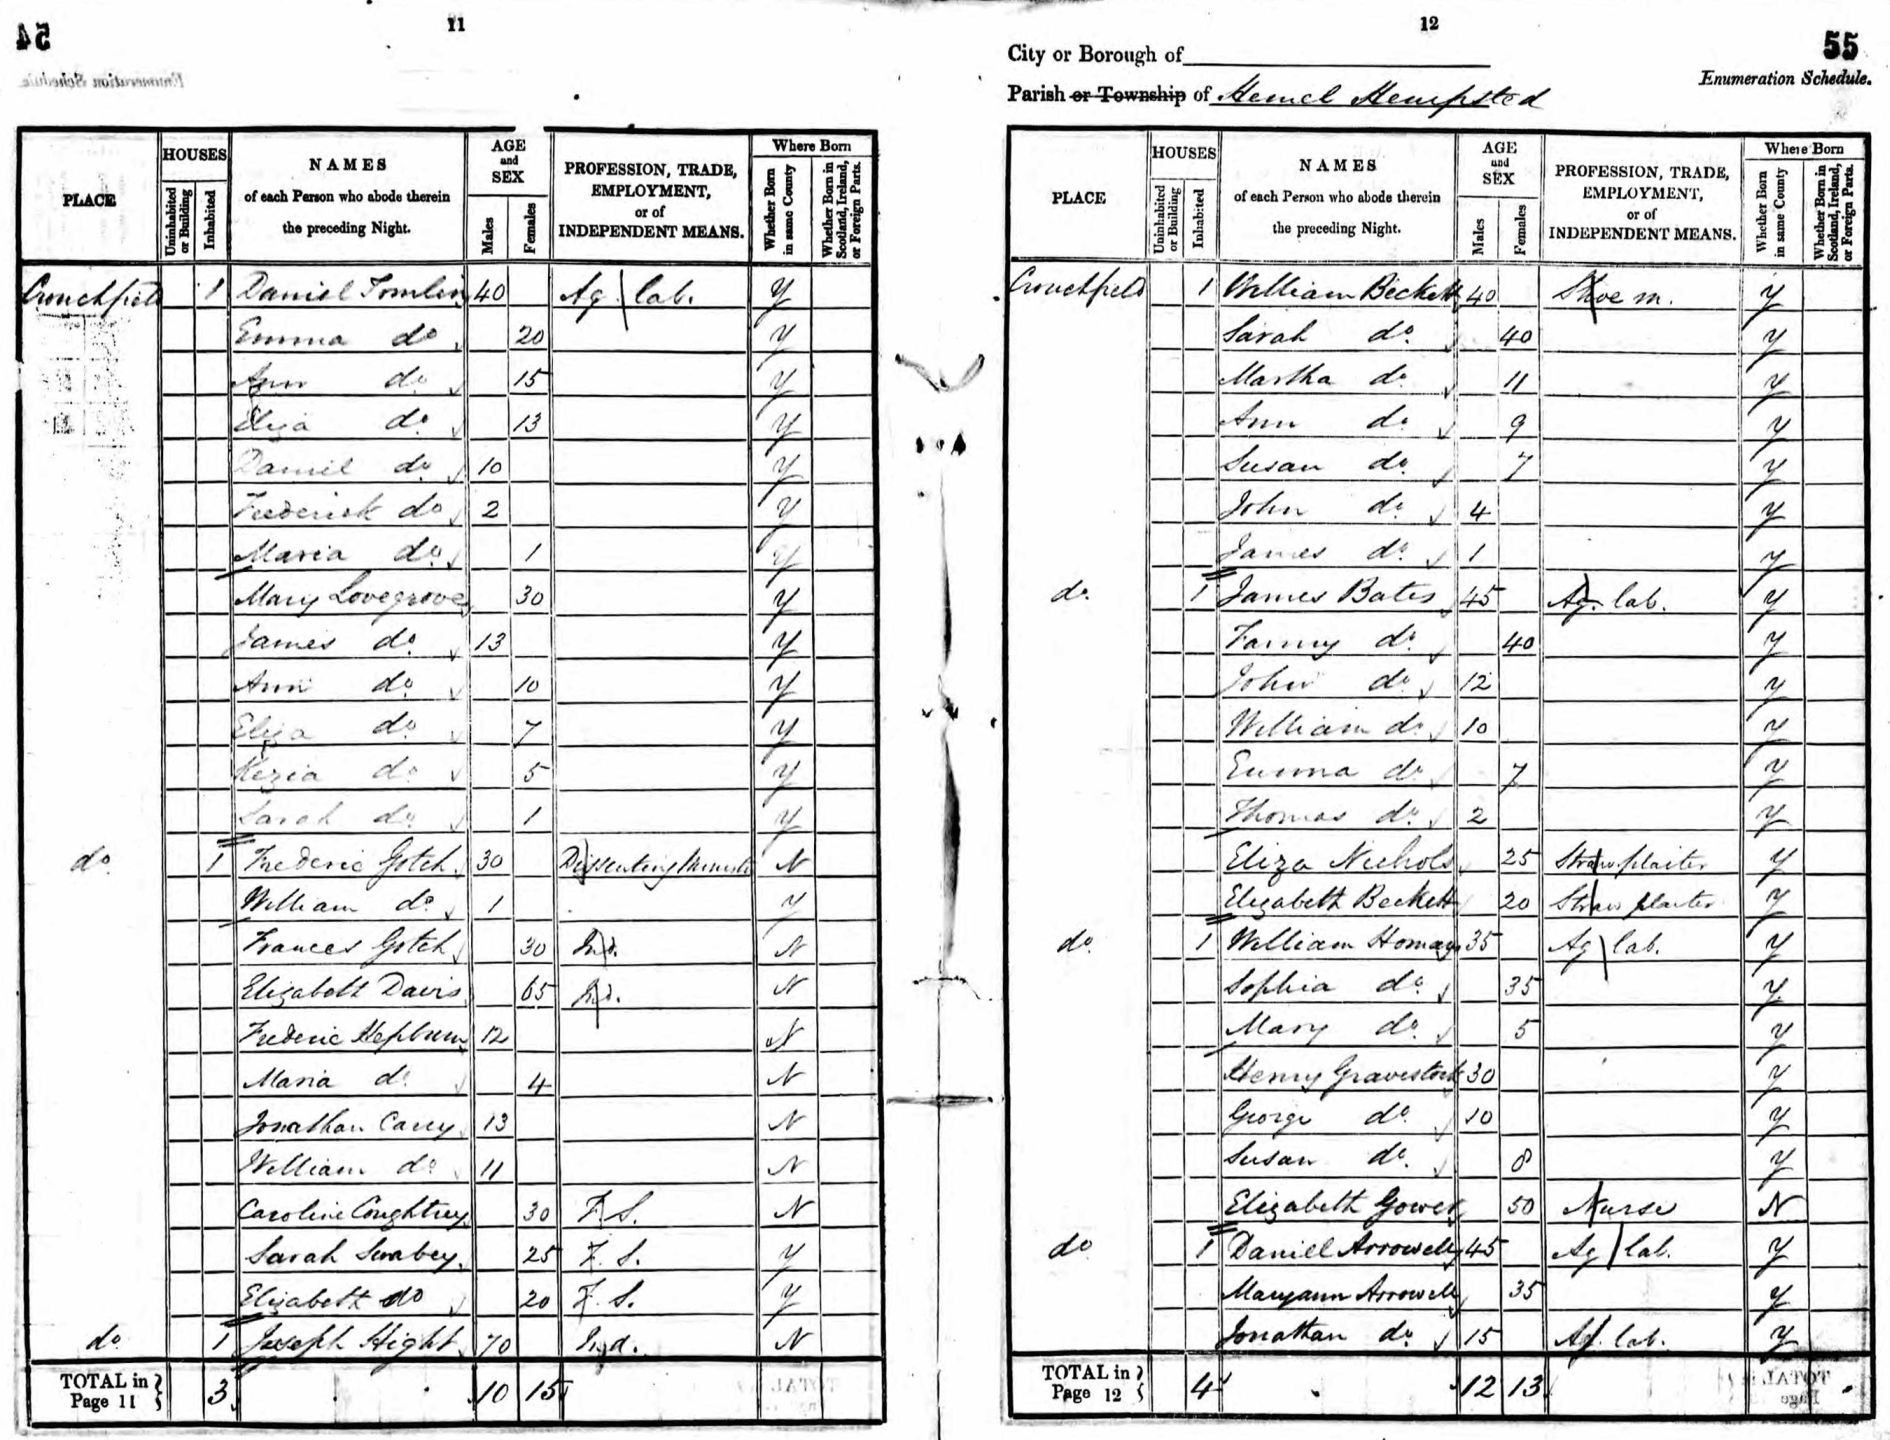 11
54
Enumeration Schedule.
PLACE
HOUSES
Uninhabited or Building
Inhabited
NAMES
of each Person who abode therein
the preceding Night.
AGE
and
SEX
Males
Females
PROFESSION, TRADE,
EMPLOYMENT,
or of
INDEPENDENT MEANS.
Where Born
Whether Born in same County
Whether Born in Scotland, Ireland, or Foreign Parts.
Crouchfield 1 Daniel Tomlin 40 Ag. lab. Y
Emma do 20 Y
Ann do 15 Y
Eliza do 13 Y
Daniel do 10 Y
Frederick do 2 Y
Maria do 1 Y
Mary Lovegrove 30 Y
James do 13 Y
Ann do 10 Y
Eliza do 7 Y
Kezia do 5 Y
Sarah do 1 Y
do 1 Frederic Gotch 30 Dissenting Minister N
William do 1 Y
Frances Gotch 30 Ind. N
Elizabeth Davis 65 Ind. N
Frederic Hepburn 12 N
Maria do 4 N
Jonathan Carey 13 N
William do 11 N
Caroline Coughtrey 30 F. S. N
Sarah Swabey 25 F. S. Y
Elizabeth do 20 F. S. Y
do 1 Joseph Hight 70 Ind. N
TOTAL in Page 11 3 10 15
12
55
City or Borough of
Enumeration Schedule.
Parish or Township of Hemel Hempsted
PLACE
HOUSES
Uninhabited or Building
Inhabited
NAMES
of each Person who abode therein
the preceding Night.
AGE
and
SEX
Males
Females
PROFESSION, TRADE,
EMPLOYMENT,
or of
INDEPENDENT MEANS.
Where Born
Whether Born in same County
Whether Born in Scotland, Ireland, or Foreign Parts.
Crouchfield 1 William Beckett 40 Shoe m. Y
Sarah do 40 Y
Martha do 11 Y
Ann do 9 Y
Susan do 7 Y
John do 4 Y
James do 1 Y
do 1 James Bates 45 Ag. lab. Y
Fanny do 40 Y
John do 12 Y
William do 10 Y
Emma do 7 Y
Thomas do 2 Y
Eliza Nichols 25 Straw plaiter Y
Elizabeth Beckett 20 Straw plaiter Y
do 1 William Homans 35 Ag lab. Y
Sophia do 35 Y
Mary do 5 Y
Henry Gravestock 30 Y
George do 10 Y
Susan do 8 Y
Elizabeth Gower 50 Nurse N
do 1 Daniel Arrowell 45 Ag lab. Y
Maryann Arrowell 35 Y
Jonathan do 15 Ag. lab. Y
TOTAL in Page 12 4 12 13